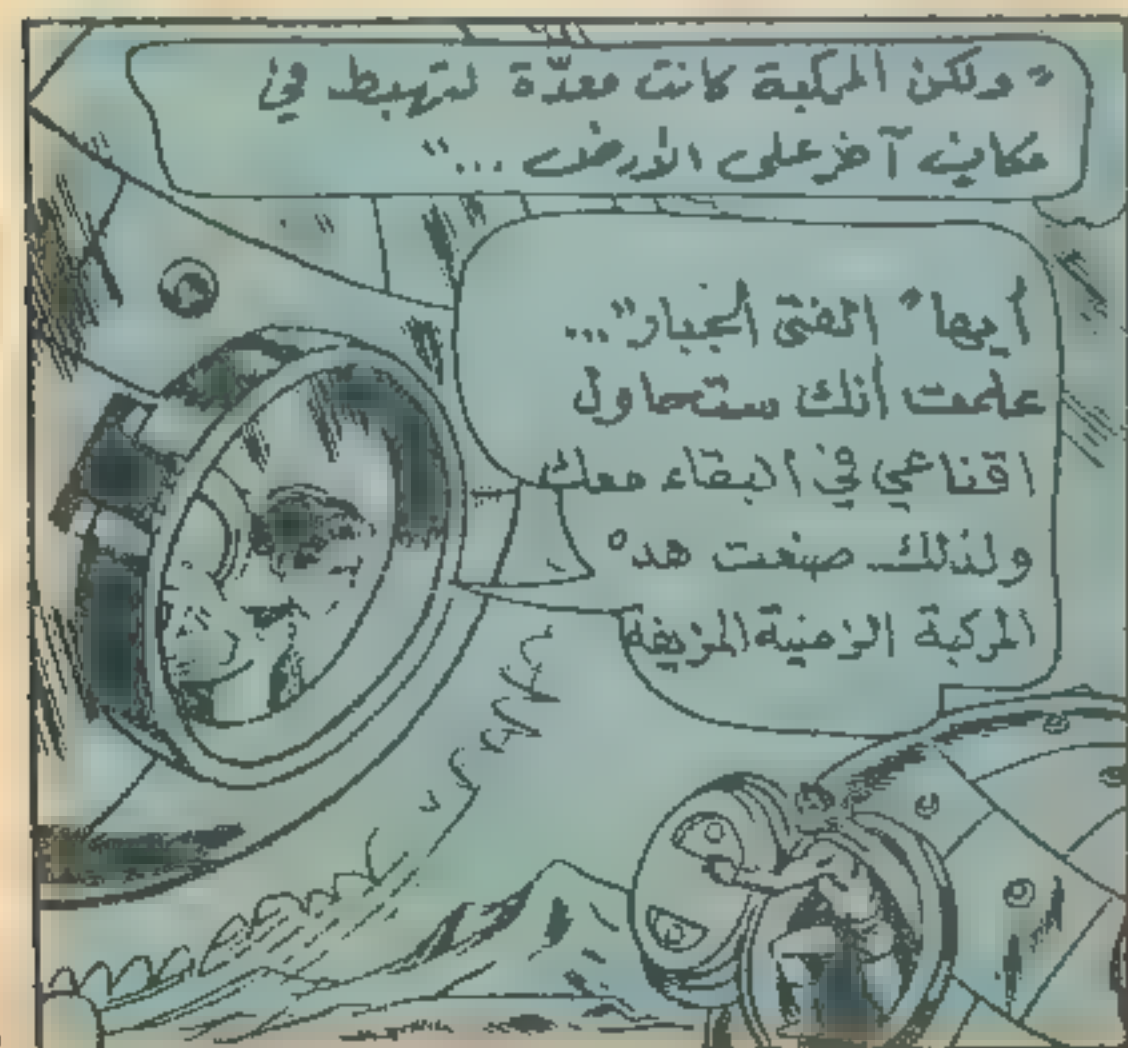 "ولكن المركبة كانت معدّة لتهبط في
مكان آخر على الأرض ..."
أيها "الفتى الجبار"...
علمت أنك ستحاول
اقناعي في البقاء معك
ولذلك صنعت هذه
المركبة الزمنية المزيفة